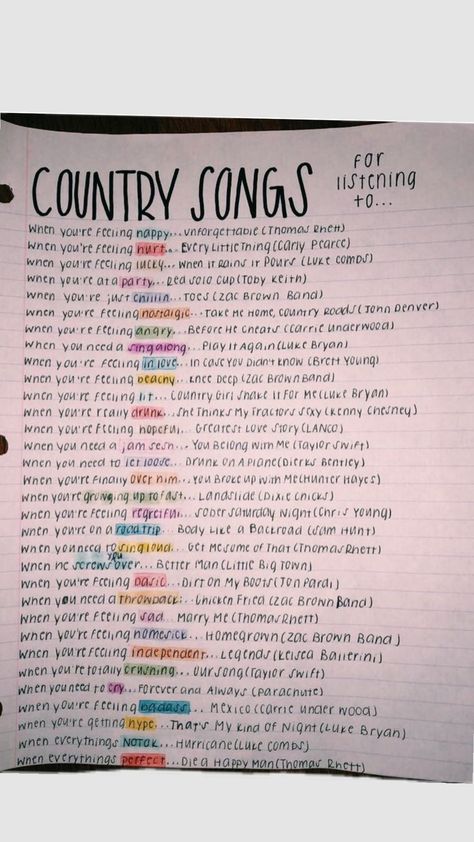 COUNTRY SONGS
FOR
listening
to...
When you're feeling happy... Unforgettable (Thomas Rhett)
When you're feeling hurt... Every Little Thing (Carly Pearce)
When you're feeling lucky... When It Rains It Pours (Luke Combs)
When you're at a party... Red Solo Cup (Toby Keith)
When you're just chillin... Toes (Zac Brown Band)
When you're feeling nostalgic... Take Me Home, Country Roads (John Denver)
When you're feeling angry... Before He Cheats (Carrie Underwood)
When you need a singalong... Play It Again (Luke Bryan)
When you're feeling in love... In Case You Didn't Know (Brett Young)
When you're feeling beachy... Knee Deep (Zac Brown Band)
When you're feeling lit... Country Girl Shake It For Me (Luke Bryan)
When you're really drunk... She Thinks My Tractors Sexy (Kenny Chesney)
When you're feeling hopeful... Greatest Love Story (LANCO)
When you need a jam sesh... You Belong With Me (Taylor Swift)
When you need to let loose... Drunk On A Plane (Dierks Bentley)
When you're finally over him... You Broke Up With Me (Hunter Hayes)
When you're growing up to fast... Landslide (Dixie Chicks)
When you're feeling regretful... Sober Saturday Night (Chris Young)
When you're on a road trip... Body Like a Backroad (Sam Hunt)
When you need to sing loud... Get Me Some of That (Thomas Rhett)
When he screws you over... Better Man (Little Big Town)
When you're feeling basic... Dirt On My Boots (Jon Pardi)
When you need a throwback... Chicken Fried (Zac Brown Band)
When you're feeling sad... Marry Me (Thomas Rhett)
When you're feeling homesick... Homegrown (Zac Brown Band)
When you're feeling independent... Legends (Kelsea Ballerini)
When you're totally crushing... Our Song (Taylor Swift)
When you need to cry... Forever and Always (Parachute)
When you're feeling badass... Mexico (Carrie Underwood)
When you're getting hype... That's My Kind Of Night (Luke Bryan)
When everythings NOT OK... Hurricane (Luke Combs)
When everythings perfect... Die a Happy Man (Thomas Rhett)